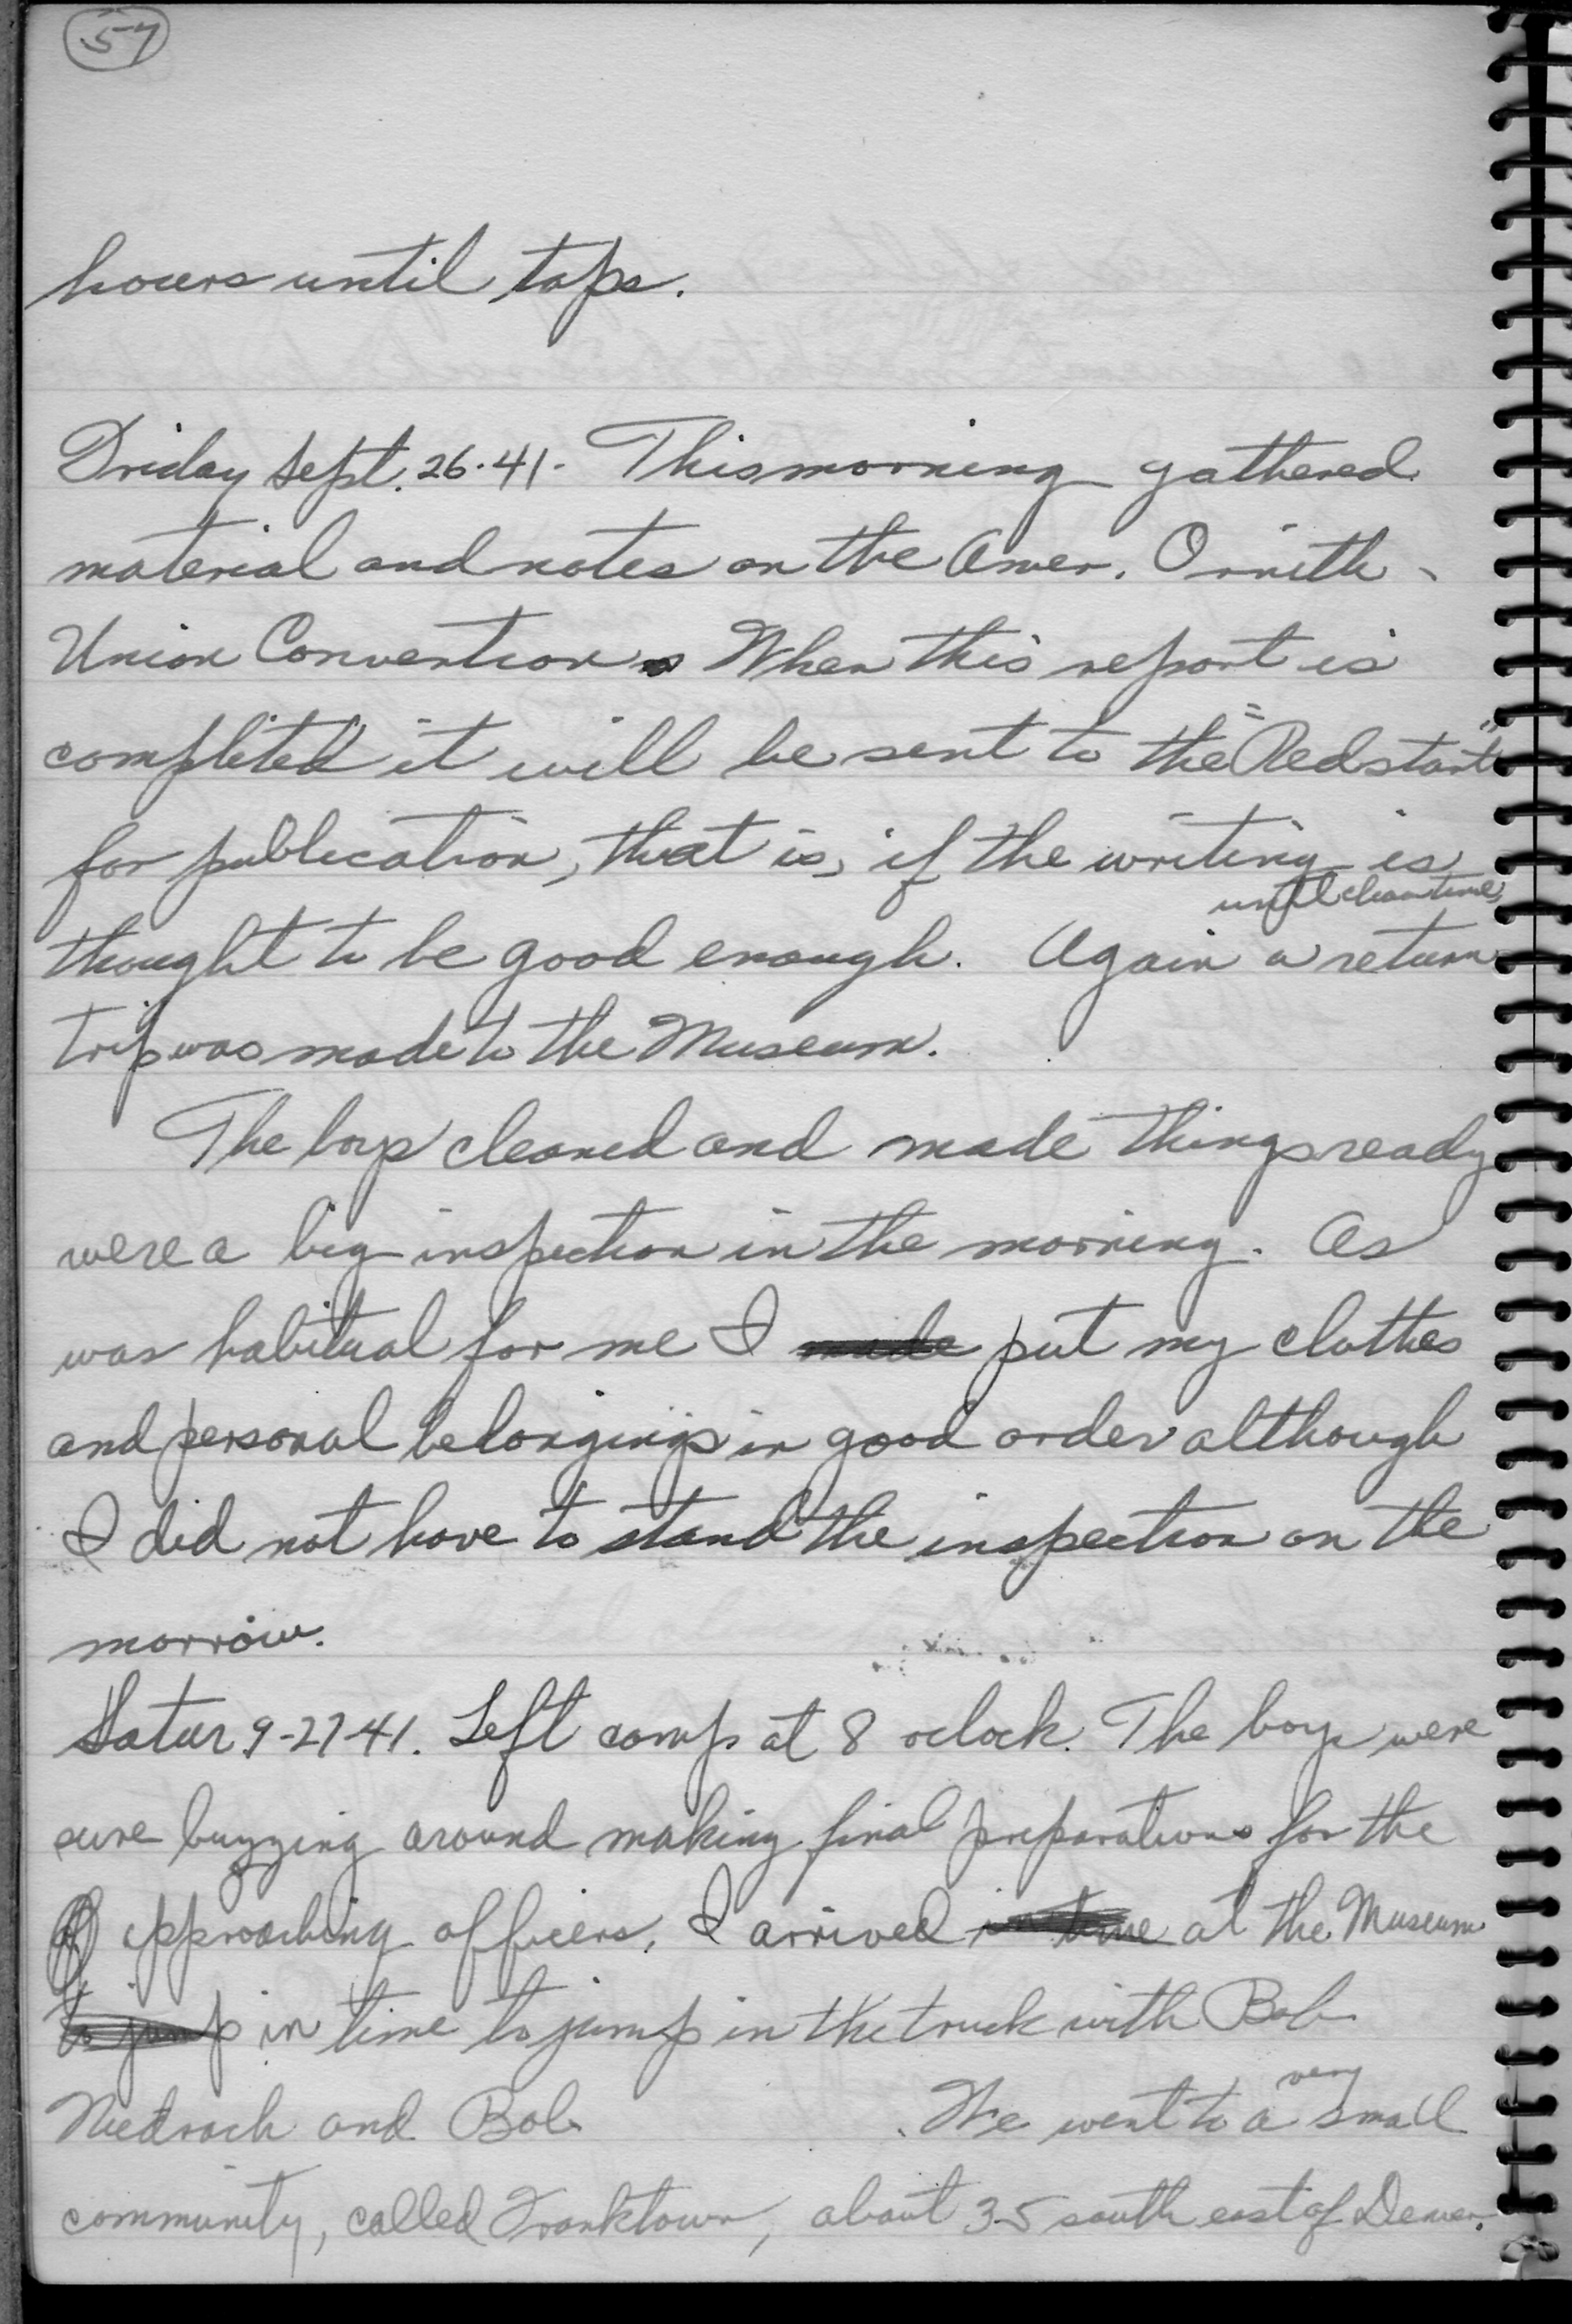 57
hours until taps.
Friday Sept. 26-41- This morning gathered
material and notes on the Amer. Ornith.
Union Convention. When this report is
completed it will be sent to the "Redstart"
for publication, that is, if the writing is
until chow time,
thought to be good enough. Again a return
trip was made to the Museum.
The boys cleaned and made things ready
were a big inspection in the morning. As
was habitual for me I made put my clothes
and personal belongings in good order although
I did not have to stand the inspection on the
morrow.
Satur 9-27-41. Left camp at 8 oclock. The boys were
sure buzzing around making final preparations for the
approaching officers. I arrived in time at the Museum
to jump in time to jump in the truck with Bob
very
Niedrach and Bob . We went to a small
community, called Franktown, about 35 south east of Denver.